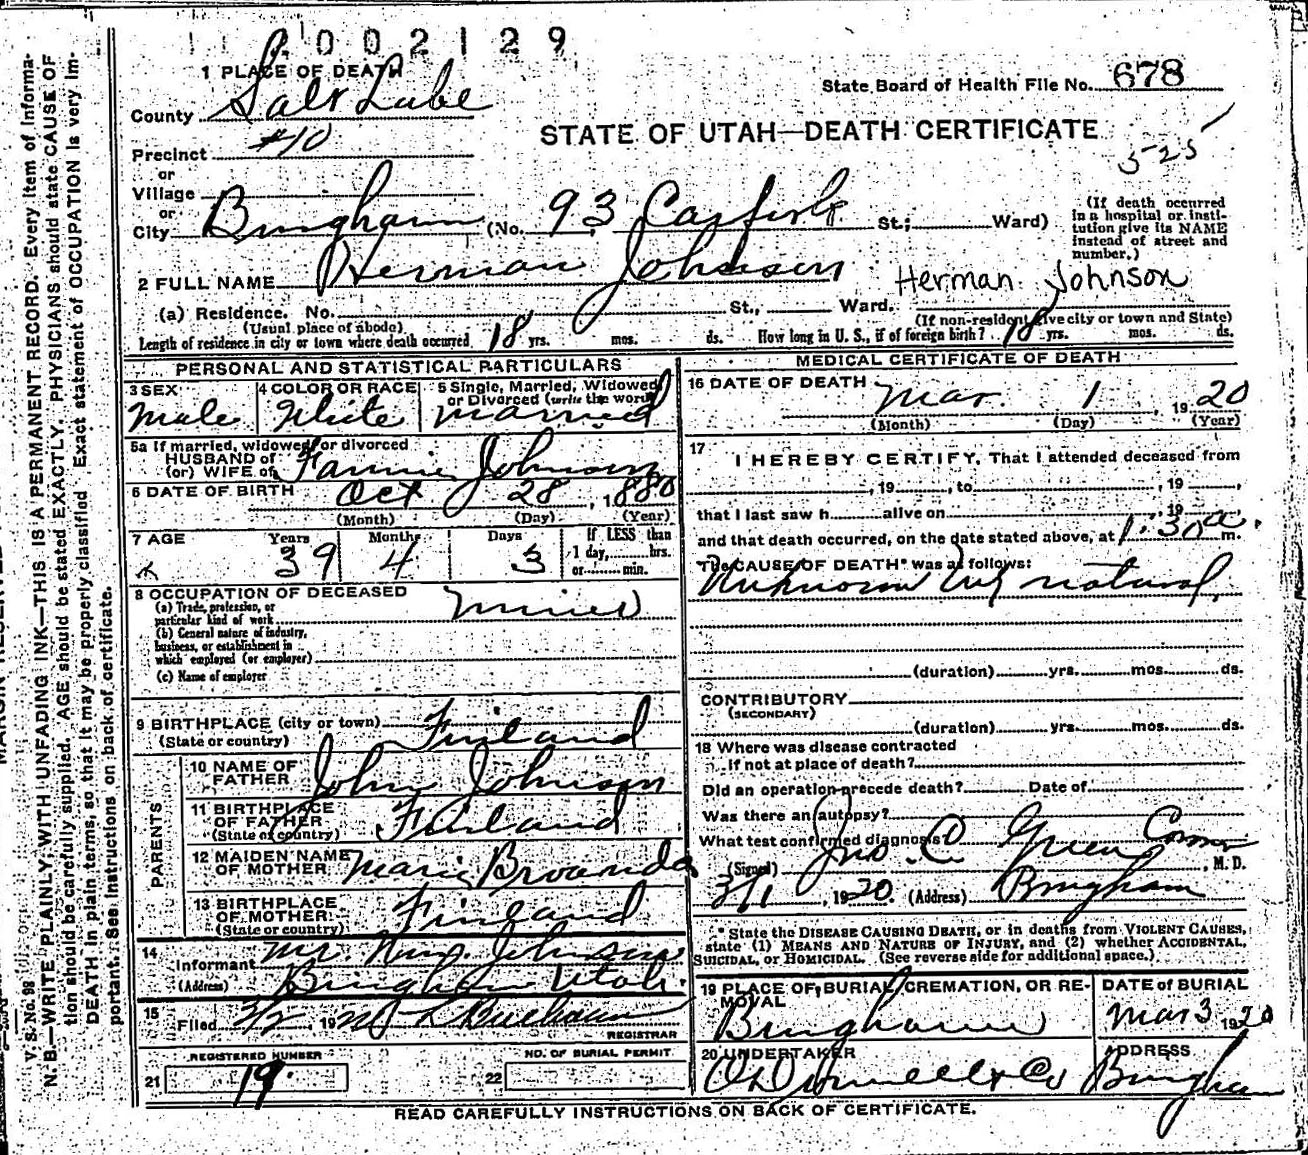 002129
1 PLACE OF DEATH
County Salt Lake
State Board of Health File No. 678
STATE OF UTAH—DEATH CERTIFICATE
525
Precinct #10
or
Village
or
City Bingham (No. 93 St.; Ward)
(If death occurred in a hospital or institution give its NAME instead of street and number.)
2 FULL NAME Herman Johnson
Herman Johnson
(a) Residence. No. St., Ward.
(Usual place of abode)
(If non-resident give city or town and State)
Length of residence in city or town where death occurred 18 yrs. mos. ds. How long in U. S., if of foreign birth? 18 yrs. mos. ds.
PERSONAL AND STATISTICAL PARTICULARS
3 SEX Male
4 COLOR OR RACE White
5 Single, Married, Widowed or Divorced (write the word) married
5a If married, widowed or divorced
HUSBAND of
(or) WIFE of Fannie Johnson
6 DATE OF BIRTH Oct 28, 1880
(Month) (Day) (Year)
7 AGE Years 39 Months 4 Days 3 If LESS than 1 day, hrs. or min.
8 OCCUPATION OF DECEASED
(a) Trade, profession, or particular kind of work Miner
(b) General nature of industry, business, or establishment in which employed (or employer)
(c) Name of employer
9 BIRTHPLACE (city or town)
(State or country) Finland
PARENTS
10 NAME OF FATHER John Johnson
11 BIRTHPLACE OF FATHER (State or country) Finland
12 MAIDEN NAME OF MOTHER Marie
13 BIRTHPLACE OF MOTHER (State or country) Finland
14 Informant Mr. Johnson
(Address) Bingham Utah.
15 Filed 3/2, 1920
REGISTRAR
21 REGISTERED NUMBER 19
22 NO. OF BURIAL PERMIT
MEDICAL CERTIFICATE OF DEATH
16 DATE OF DEATH Mar. 1, 1920
(Month) (Day) (Year)
17 I HEREBY CERTIFY, That I attended deceased from
, 19 , to , 19 ,
that I last saw h alive on , 19 ,
and that death occurred, on the date stated above, at 1:30 a. m.
The CAUSE OF DEATH* was as follows:
Unknown but natural
(duration) yrs. mos. ds.
CONTRIBUTORY
(SECONDARY)
(duration) yrs. mos. ds.
18 Where was disease contracted
if not at place of death?
Did an operation precede death? Date of
Was there an autopsy?
What test confirmed diagnosis?
(Signed) Jno. C. Green Coroner, M. D.
3/1, 1920. (Address) Bingham
* State the DISEASE CAUSING DEATH, or in deaths from VIOLENT CAUSES,
state (1) MEANS AND NATURE OF INJURY, and (2) whether ACCIDENTAL,
SUICIDAL, or HOMICIDAL. (See reverse side for additional space.)
19 PLACE OF BURIAL, CREMATION, OR REMOVAL
Bingham
DATE OF BURIAL
Mar 3 1920
20 UNDERTAKER
O'Donnell & Co
ADDRESS
Bingham
READ CAREFULLY INSTRUCTIONS ON BACK OF CERTIFICATE.
V. S. No. 98
N. B.—WRITE PLAINLY, WITH UNFADING INK—THIS IS A PERMANENT RECORD. Every item of Informa-
tion should be carefully supplied. AGE should be stated EXACTLY. PHYSICIANS should state CAUSE OF
DEATH in plain terms, so that it may be properly classified. Exact statement of OCCUPATION is very im-
portant. See instructions on back of certificate.